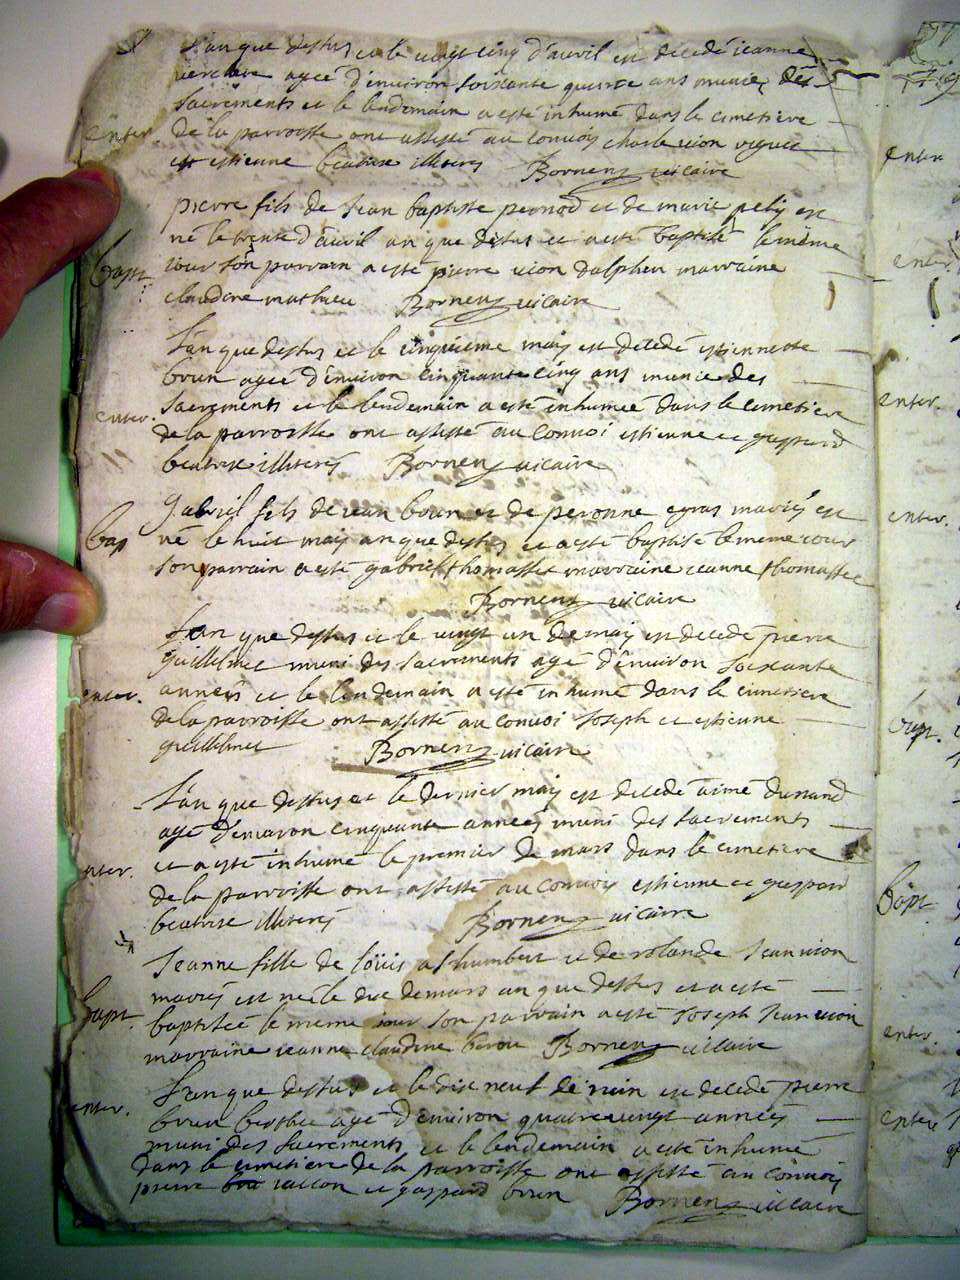 L'an que dessus et le vingt cinq d'avril est decedé jeanne
agee d'environ soixante quatre ans munie des
sacrements et le lendemain a esté inhumé dans le cimetiere
enter
de la parroisse ont assisté au convoy charle vion
et estienne beatrise illiterés Bornens vicaire
pierre fils de Jean baptiste pernod et de marie pelij est
né le trente d'avril an que dessus et a esté baptisé le même
bapt
iour son parrain a esté pierre vion dalphen marraine
claudine mathieu Bornens vicaire
L'an que dessus et le cinquieme maij est decedé estiennete
brun agee d'environ cinquante cinq ans munie des
enter.
sacrements et le lendemain a esté inhumeé dans le cimetiere
de la parroisse ont assisté au convoi estienne et gaspard
beatrise illiterés Bornens vicaire
gabriel fils de iean brun et de peronne egras mariés est
bap
né le huit maij an que dessus et a esté baptisé le meme iour
son parrain a esté gabriel thomasset marraine ieanne thomassee
Bornens vicaire
L'an que dessus et le vingt un de maij est decedé pierre
guillelmet muni des sacrements agé d'environ soixante
enter.
anneés et le lendemain a esté inhumé dans le cimetiere
de la parroisse ont assisté au convoi Joseph et estienne
guillelmet Bornens vicaire
L'an que dessus et le dernier maij est decedé aimé dunand
agé d'environ cinquante anneés muni des sacrements
nter.
et a esté inhumé le premier de mars dans le cimetiere
de la parroisse ont assisté au convoij estienne et gaspard
beatrise illiterés Bornens vicaire
Jeanne fille de loüis a humbert et de rolande Jeanvion
mariés est neé le dix de mars an que dessus et a esté
bapt.
baptiseé le meme iour son parrain a esté Joseph Jeanvion
marraine ieanne claudine Bornens vicaire
L'an que dessus et le dix neuf de iuin est decedé pierre
enter.
brun agé d'environ quatre vingt anneés
muni des sacrements et le lendemain a esté inhumé
dans le cimetiere de la parroisse ont assisté au convoij
pierre et gaspard brun Bornens vicaire
enter
enter.
enter.
enter.
bapt.
bapt
enter.
enter